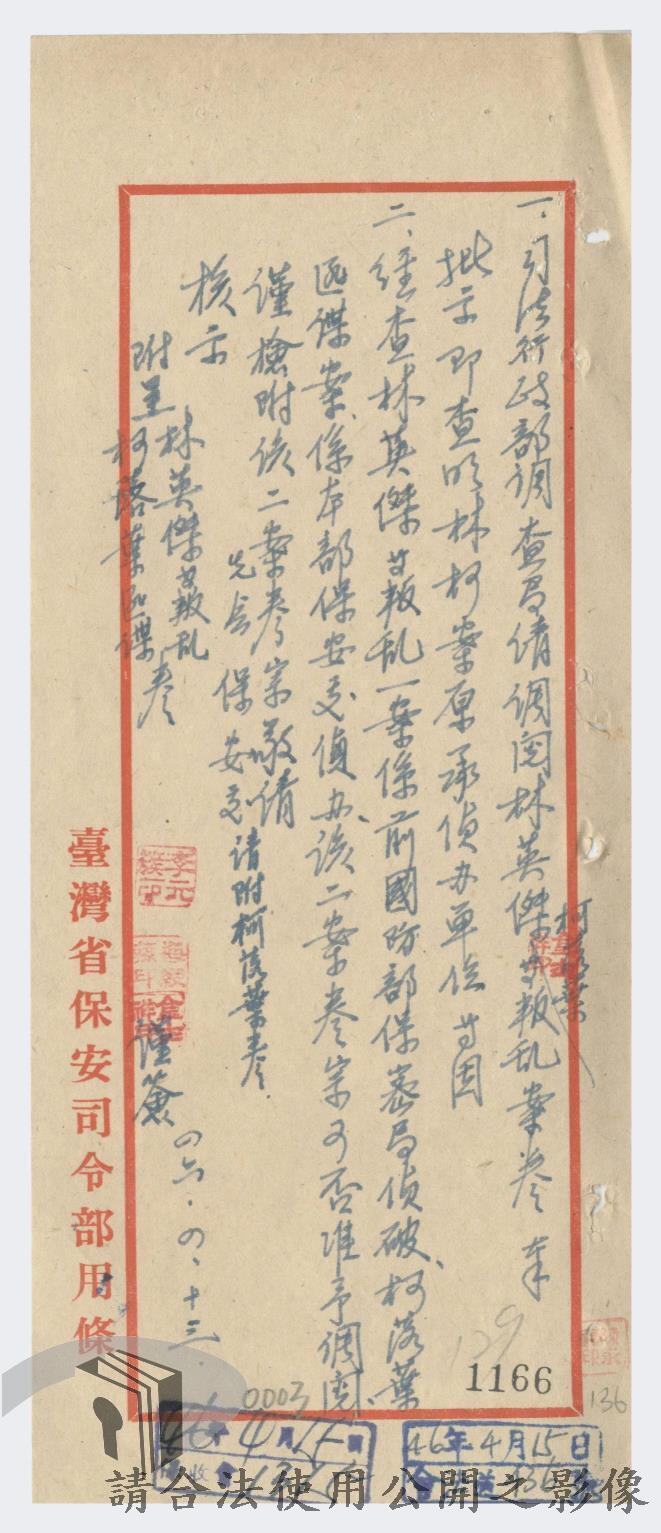 一、司法行政部調查局請調閱林英傑等叛乱案卷奉
柯落葉
批示即查明林柯案原承偵办單位等因
二、經查林英傑等叛乱一案係前國防部保密局偵破、柯落葉
匪諜案、係本部保安處偵办、該二案卷宗可否准予調閱、
謹檢附該二案卷宗敬請
先会保安處請附柯落葉卷
核示
附呈林英傑等叛乱
柯落葉匪諜卷
謹簽
四六、四、十三、
臺灣省保安司令部用條
129
1166
136
0003
46年4月15日
46年4月15日
請合法使用公開之影像